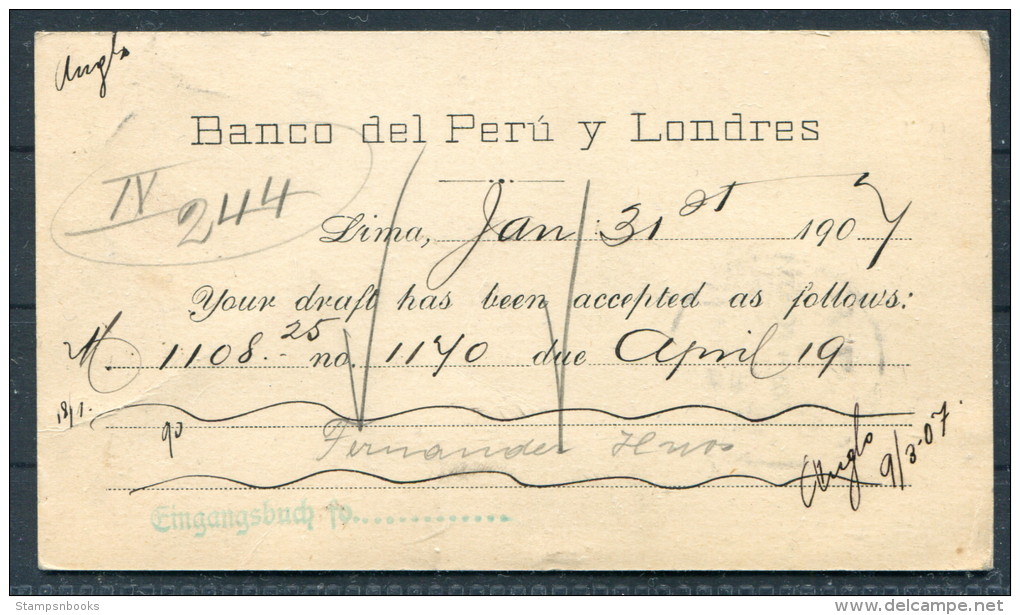 Anglo
Banco del Perú y Londres
IV
244
Lima, Jan 31st 1907
Your draft has been accepted as follows:
M. 1108.25 no. 1170 due April 19
18/1.
90
Fernandez Hnos
Anglo
9/3.07.
Eingangsbuch fo..............
Stampsnbooks
delcampe.net